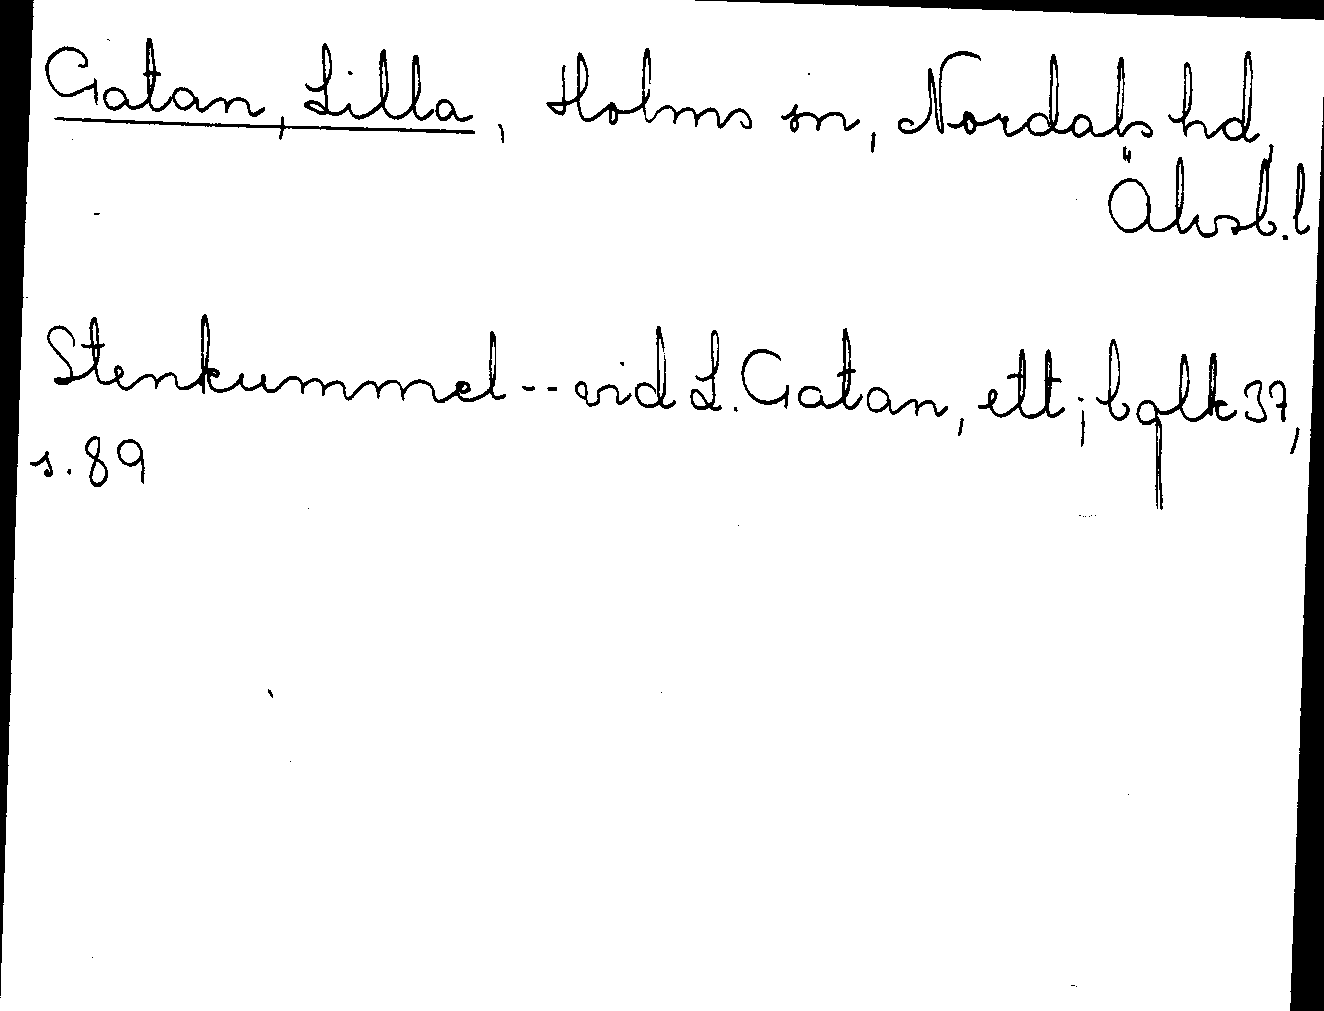 Gatan, Lilla, Holms sn, Nordals hd,
Älvsb. l
Stenkummel -- vid L. Gatan, ett; bqlk 37,
s. 89